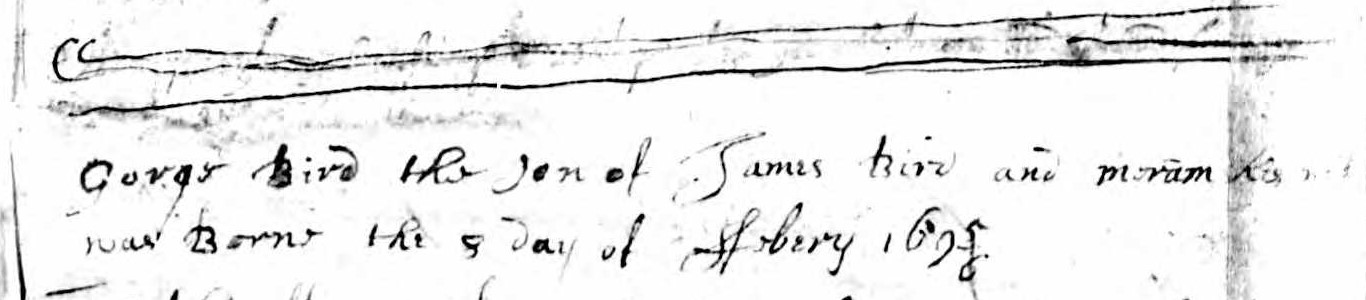 Gorge Bird the son of James Bird and meram his
was Borne the 5 day of ffebery 169⅚